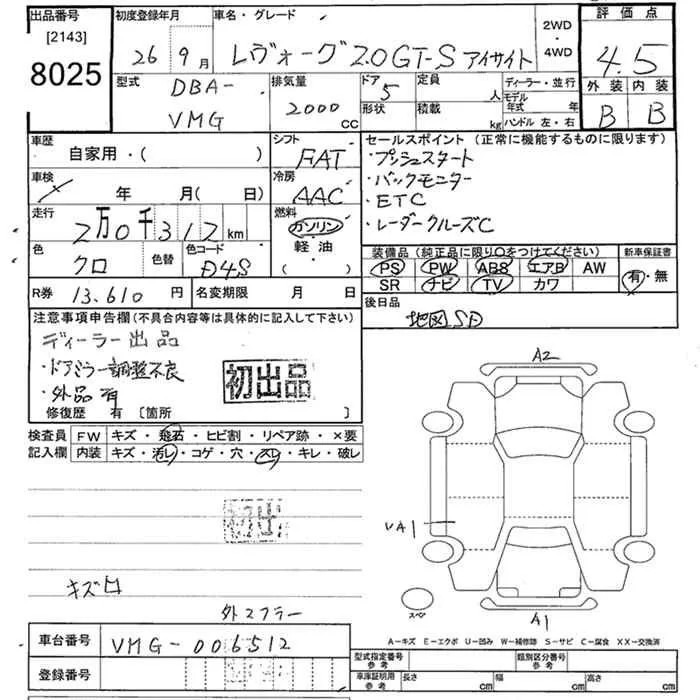 出品番号 初度登録年月 車名・グレード 2WD・4WD 評価点
[2143]
8025 26年 9月 レヴォーグ 2.0GT-S アイサイト 4.5
型式 排気量 ドア 定員 ディーラー・並行 外装 内装
DBA- 2000CC 5 人 モデル年式 年 B B
VMG 形状 積載 kg ハンドル 左・右
車歴 シフト セールスポイント(正常に機能するものに限ります)
自家用・( ) FAT ・プッシュスタート
車検 冷房 ・バックモニター
年 月( 日) AAC ・ETC
走行 燃料 ・レーダークルーズC
2万0千312km ガソリン・軽油・( )
色 色替 色コード 装備品(純正品に限り○をつけてください) 新車保証書
クロ D4S PS PW ABS エアB AW 有・無
SR ナビ TV カワ
R券 13.610円 名変期限 月 日 後日品
地図SD
注意事項申告欄(不具合内容等は具体的に記入して下さい)
ディーラー出品
・ドアミラー調整不良
・外品有
初出品
修復歴 有 [箇所 ]
A2
検査員記入欄 FW キズ・飛石・ヒビ割・リペア跡・×要
内装 キズ・汚レ・コゲ・穴・スレ・キレ・破レ
初出
UA1
キズ
外マフラー
スペア
A1
車台番号 VMG-006512
A-キズ E-エクボ U-凹み W-補修跡 S-サビ C-腐食 XX-交換済
登録番号
型式指定番号 参考 類別区分番号 参考
車庫証明用 参考 長さ cm 幅 cm 高さ cm